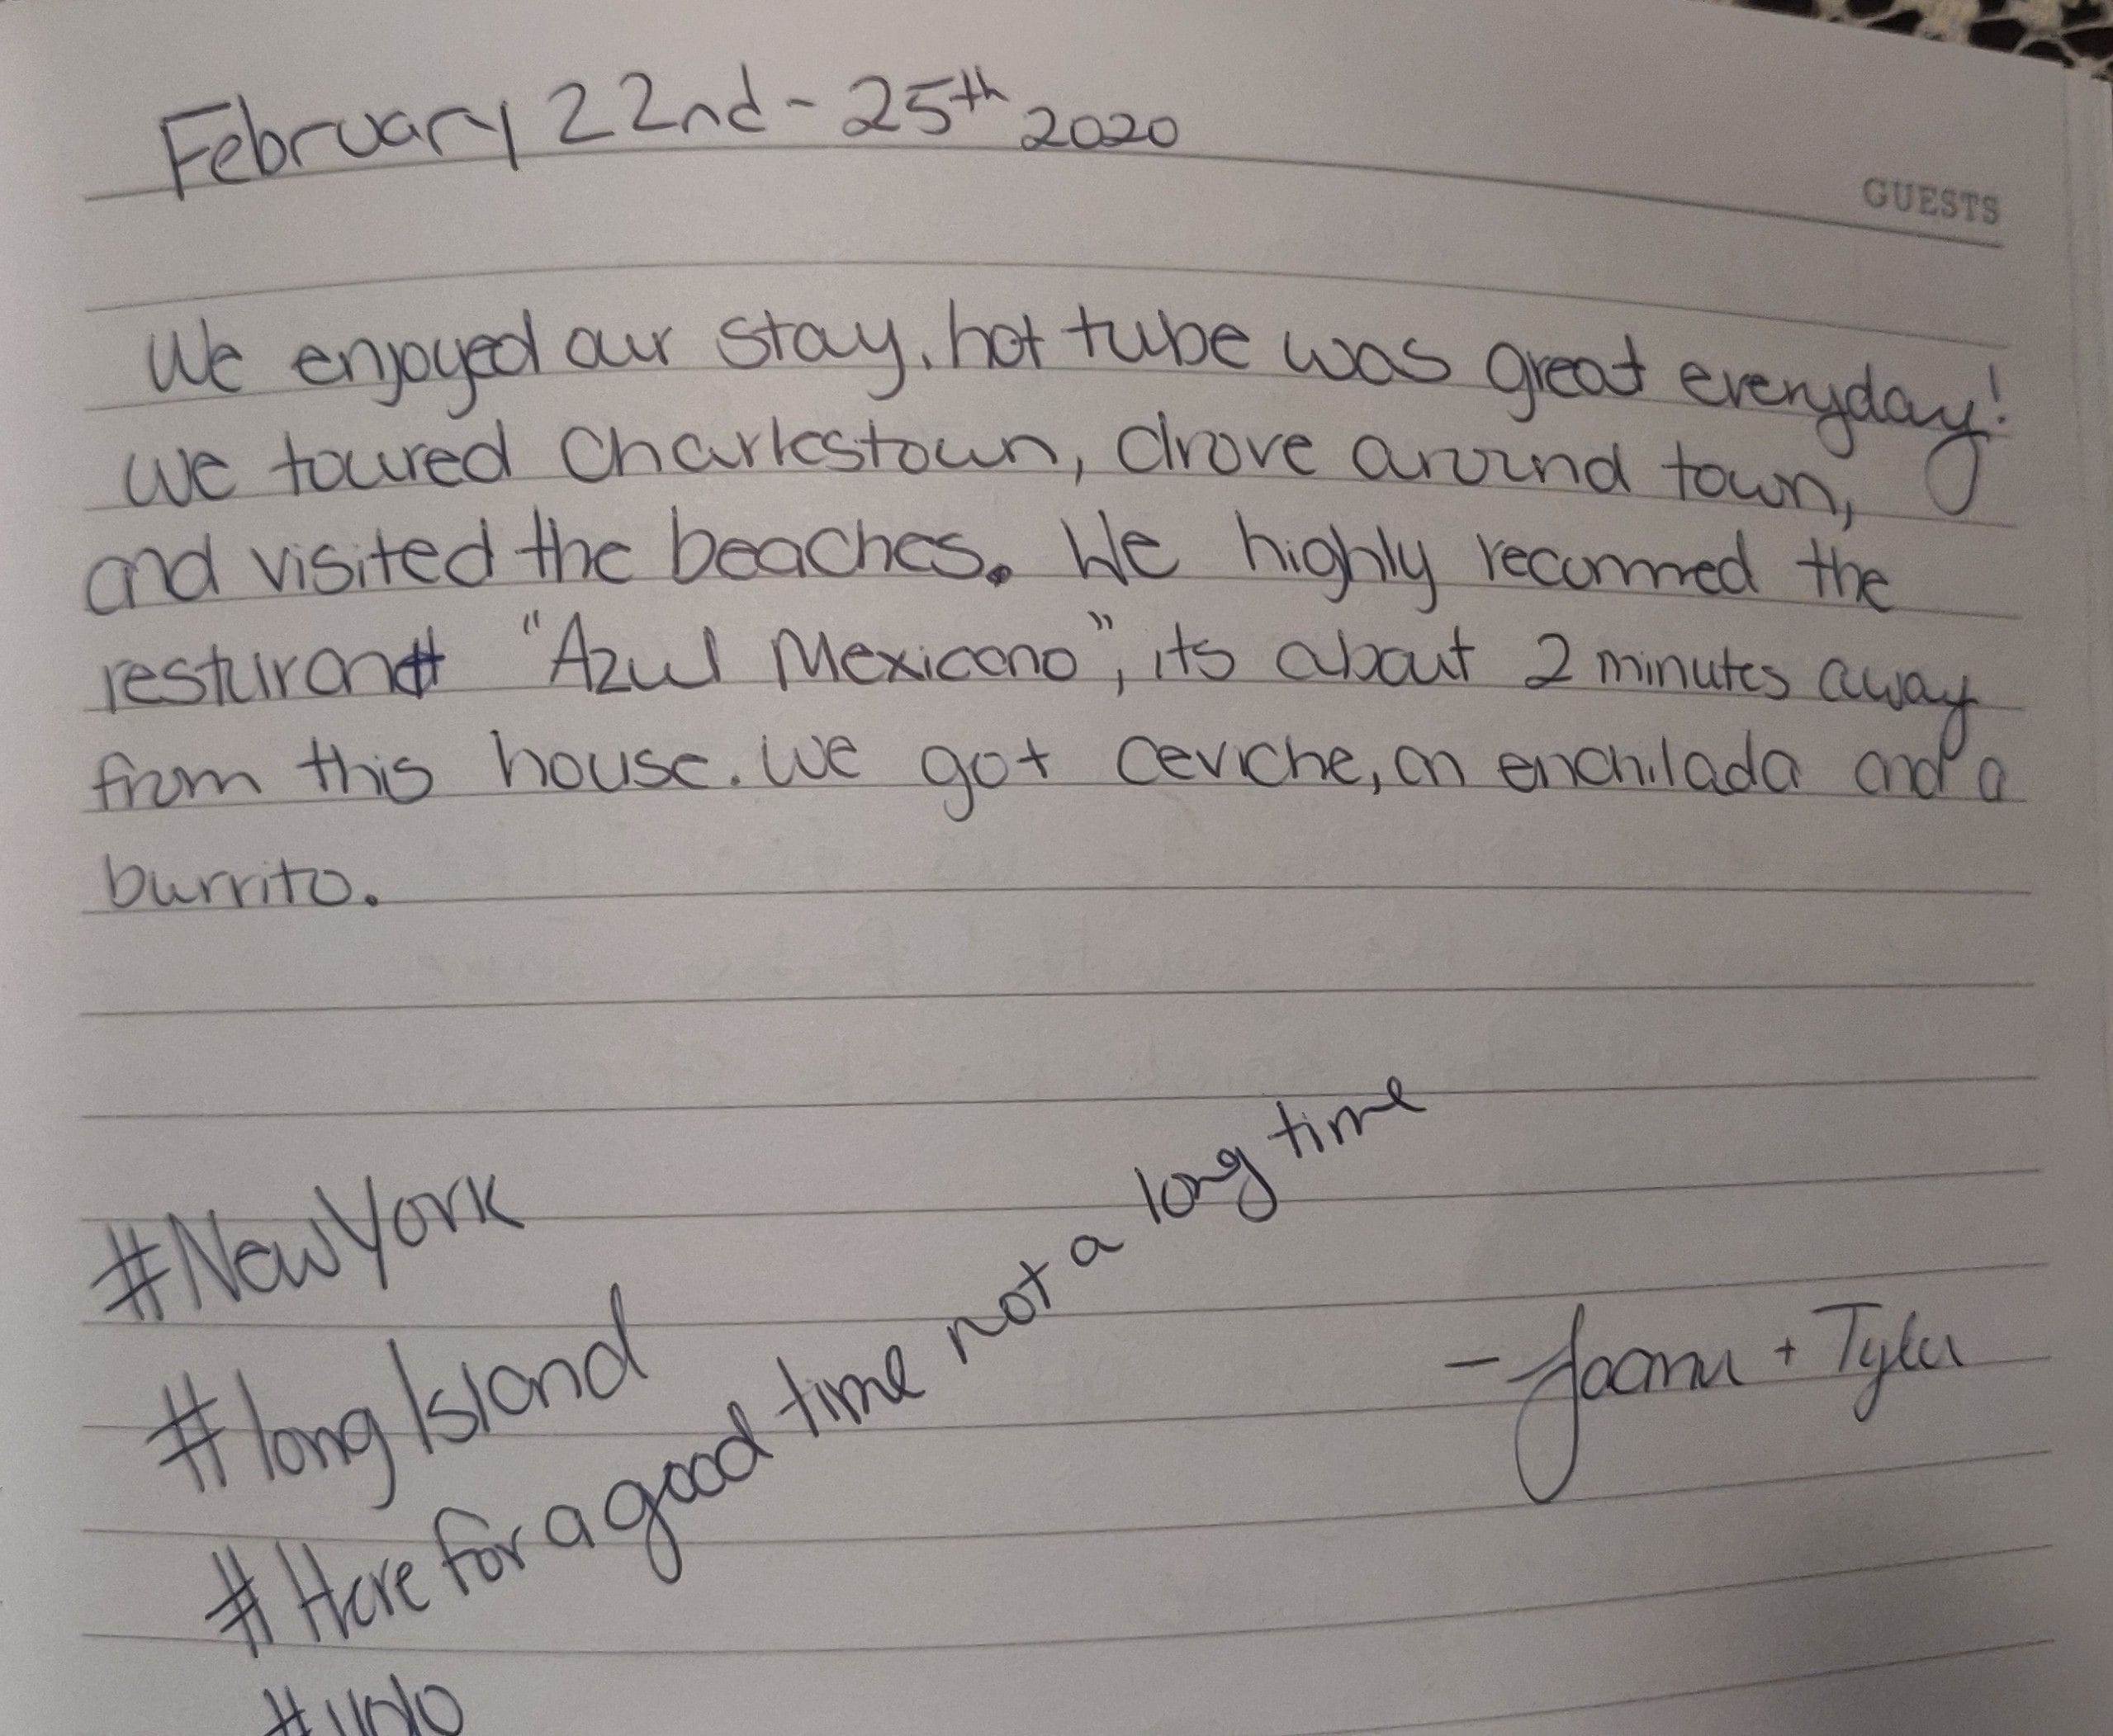 February 22nd - 25th 2020
GUESTS
We enjoyed our stay, hot tube was great everyday!
we toured Charlestown, drove around town,
and visited the beaches. We highly recommed the
resturant "Azul Mexicano", its about 2 minutes away
from this house. We got ceviche, an enchilada and a
burrito.
#NewYork
#longIsland
#Here for a good time not a long time
- + Tyler
#yolo